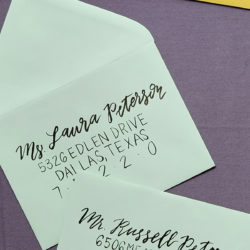 Ms. Laura Peterson
5326 EDLEN DRIVE
DALLAS, TEXAS
7 2 2 0
Mr. Russell Peter
6506 ME